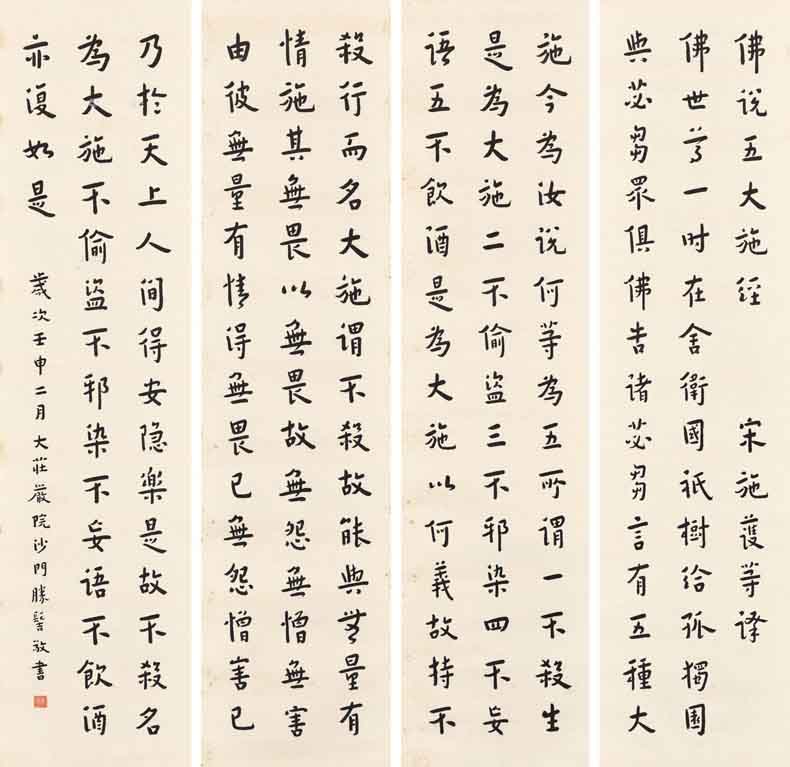 佛說五大施經 宋施護等譯
佛世尊一時在舍衛國祇樹給孤獨園
與苾芻眾俱佛告諸苾芻言有五種大
施今為汝說何等為五所謂一不殺生
是為大施二不偷盜三不邪染四不妄
語五不飲酒是為大施以何義故持不
殺行而名大施謂不殺故能與無量有
情施其無畏以無畏故無怨無憎無害
由彼無量有情得無畏已無怨憎害已
乃於天上人間得安隱樂是故不殺名
為大施不偷盜不邪染不妄語不飲酒
亦復如是 歲次壬申二月大莊嚴院沙門勝髻敬書